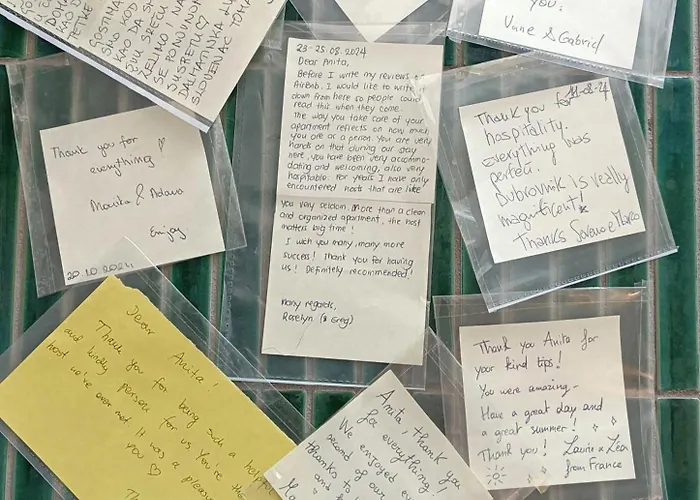 KAO DA S
ŽELIMO I NA
SE PONOVNO
SUSRETU
DALMATINKA
SLOVENAC
you!
Vune & Gabriel
23-25.08.2024
Dear Anita,
Before I write my reviews to
AirBnb. I would like to write it
down from here so people could
read this when they come.
The way you take care of your
apartment reflects on how much
you are as a person. You are very
hands on that during our stay
here, you have been very accommo-
dating and welcoming, also very
hospitable. For years I have only
encountered hosts that are like
you very seldom. More than a clean
and organized apartment, the host
matters big time!
I wish you many, many more
success! Thank you for having
us! Definitely recommended!
Many regards,
Roselyn (& Greg)
Thank you for
everything
Marika & Adava
Enjoy
20.10.2024.
Thank you for
hospitality.
Everything was
perfect.
Dubrovnik is really
magnificent!
Thanks Marco
Dear Anita!
Thank you for being such a helpful
and kindly person for us You're the
host we've ever met It was a pleasure
you ♡
Th
Anita thank you
for everything!
We enjoyed
second of our
thanks to
and
Thank you Anita for
your kind tips!
You were amazing-
Have a great day and
a great summer!
Thank you! Laurie x Léa
from France